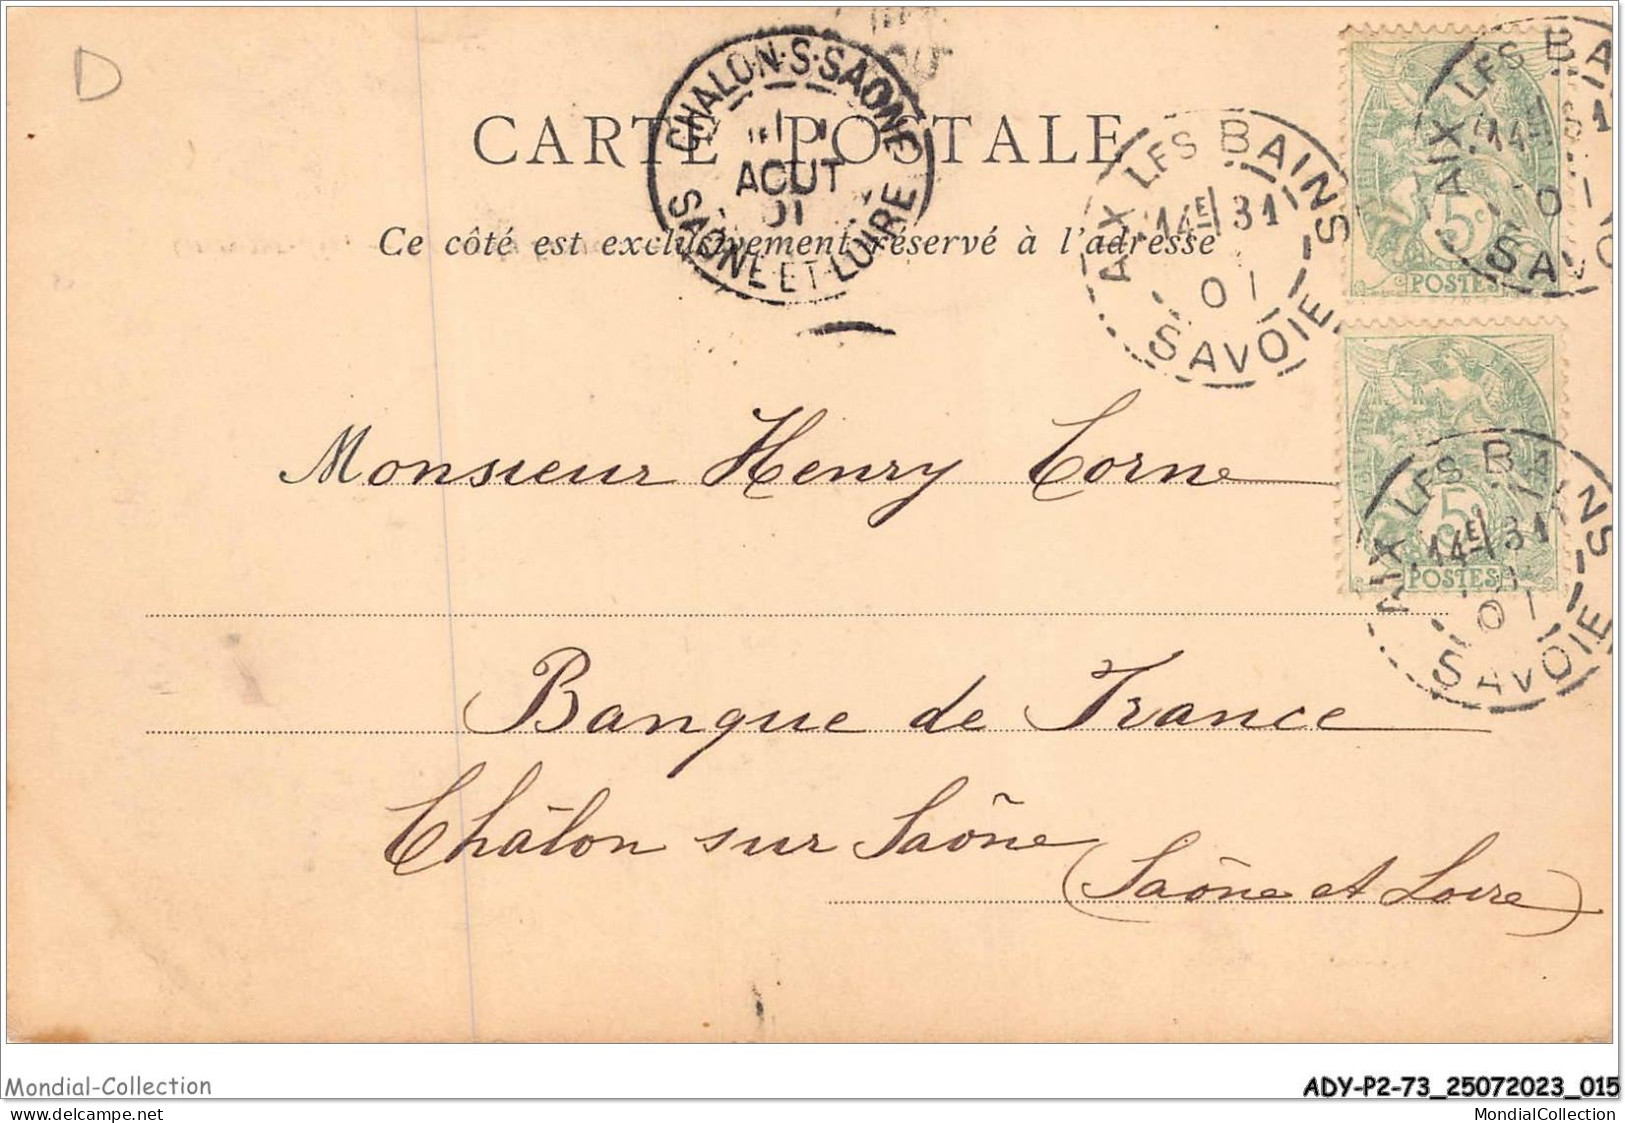 D
CARTE POSTALE
Ce côté est exclusivement réservé à l'adresse
CHALON-S-SAONE
AOUT
01
SAONE-ET-LOIRE
AIX LES BAINS
14E 31
01
SAVOIE
AIX LES BA
14
01
SAVO
5c
POSTES
AIX LES BAINS
14E 31
01
SAVOIE
5c
POSTES
Monsieur Henry Corne
Banque de France
Châlon sur Saône
(Saône et Loire)
Mondial-Collection
ADY-P2-73_25072023_015
www.delcampe.net
MondialCollection